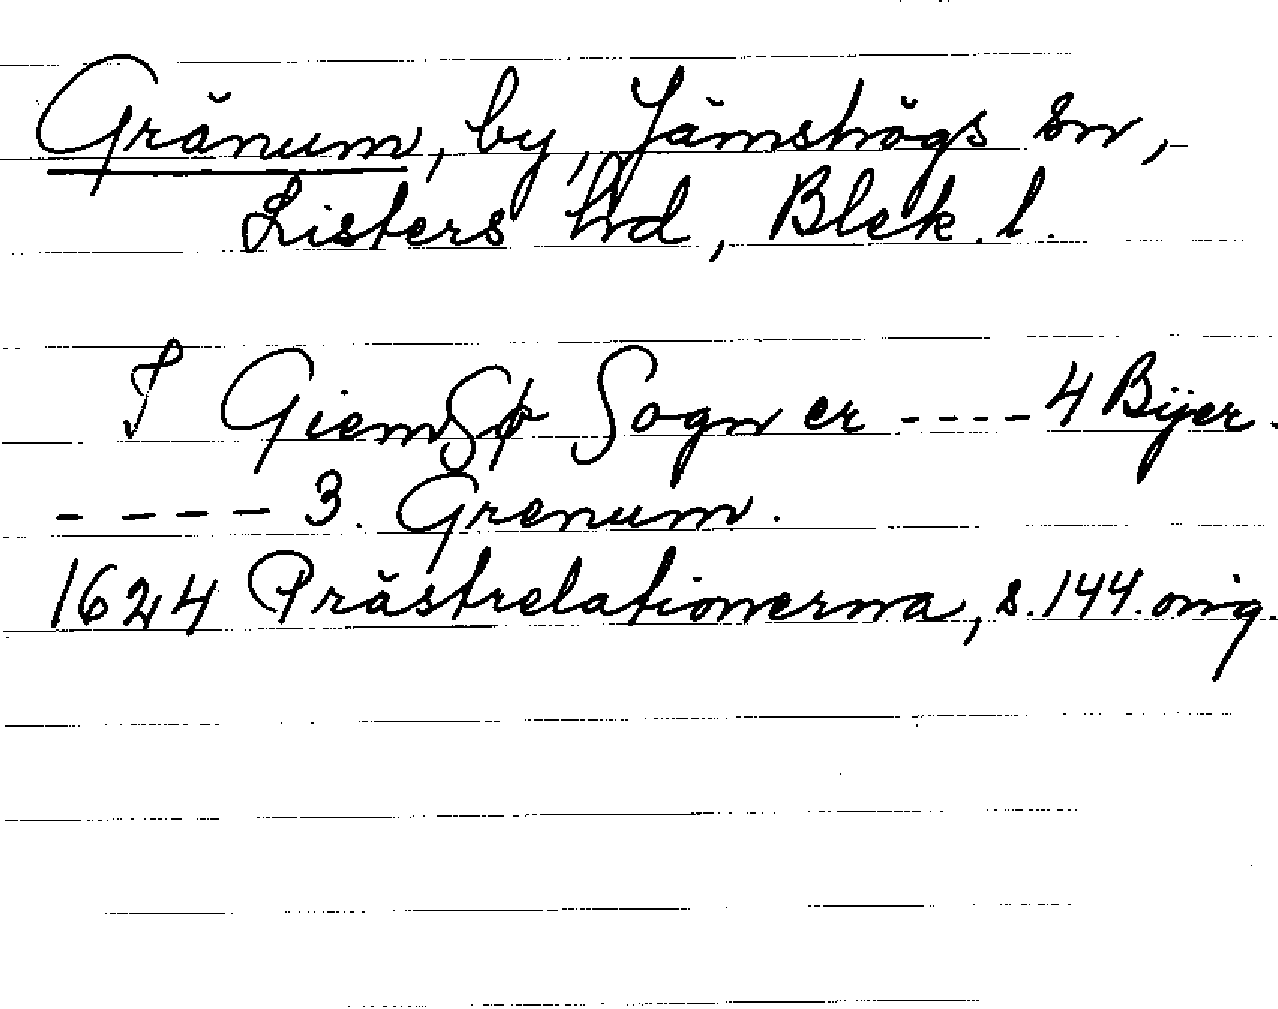 Gränum, by, Jämshögs sn,
Listers hd, Blek. l.
I GiemSø Sogn er ---- 4 Bÿer.
---- 3. Grenum.
1624 Prästrelationerna, s. 144. orig.